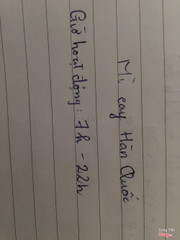 Mì cay Hàn Quốc
Giờ hoạt động: 7h - 22h